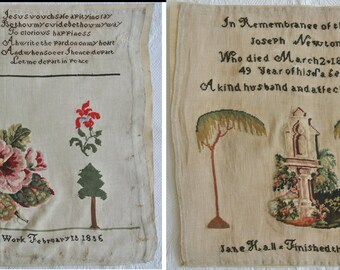 Jesus vouchsafe a pitying ray
Be thou my guide be thou my way
To glorious happiness
Ah write the pardon on my heart
And whensoer I hence depart
Let me depart in peace
Work February 18 1856
In Remembrance of th
Joseph Newton
Who died March 2 18
49 Year of his age
A kind husband and affect
Jane Hall Finished th